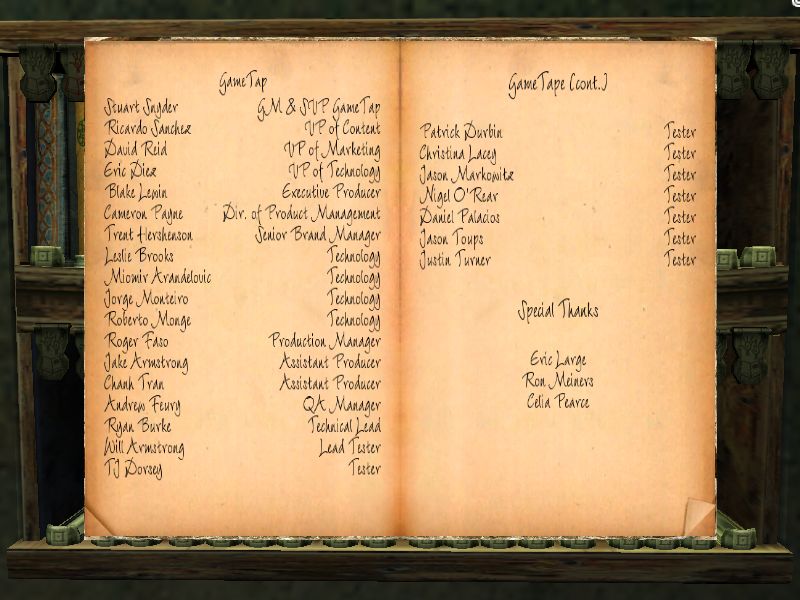 GameTap
Stuart Snyder GM & SVP GameTap
Ricardo Sanchez VP of Content
David Reid VP of Marketing
Eric Diez VP of Technology
Blake Lewin Executive Producer
Cameron Payne Dir. of Product Management
Trent Hershenson Senior Brand Manager
Leslie Brooks Technology
Miomir Arandelovic Technology
Jorge Monteiro Technology
Roberto Monge Technology
Roger Faso Production Manager
Jake Armstrong Assistant Producer
Chanh Tran Assistant Producer
Andrew Feury QA Manager
Ryan Burke Technical Lead
Will Armstrong Lead Tester
TJ Dorsey Tester
GameTape (cont.)
Patrick Durbin Tester
Christina Lacey Tester
Jason Markowitz Tester
Nigel O'Rear Tester
Daniel Palacios Tester
Jason Toups Tester
Justin Turner Tester
Special Thanks
Eric Large
Ron Meiners
Celia Pearce